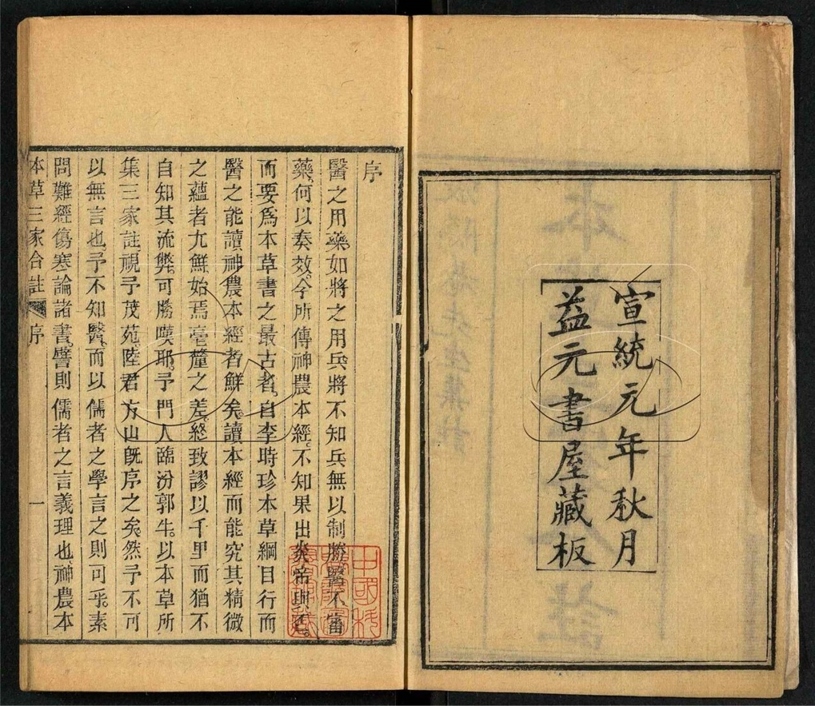 宣統元年秋月
益元書屋藏板
序
醫之用藥如將之用兵將不知兵無以制勝醫不審
藥何以奏效今所傳神農本經不知果出炎帝與否
而要爲本草書之最古者自李時珍本草綱目行而
醫之能讀神農本經者鮮矣讀本經而能究其精微
之蘊者尤鮮始焉毫釐之差終致謬以千里而猶不
自知其流弊可勝嘆耶予門人臨汾郭生以本草所
集三家註視予茂苑陸君方山旣序之矣然予不可
以無言也予不知醫而以儒者之學言之則可乎素
問難經傷寒論諸書譬則儒者之言義理也神農本
本草三家合註 序 一